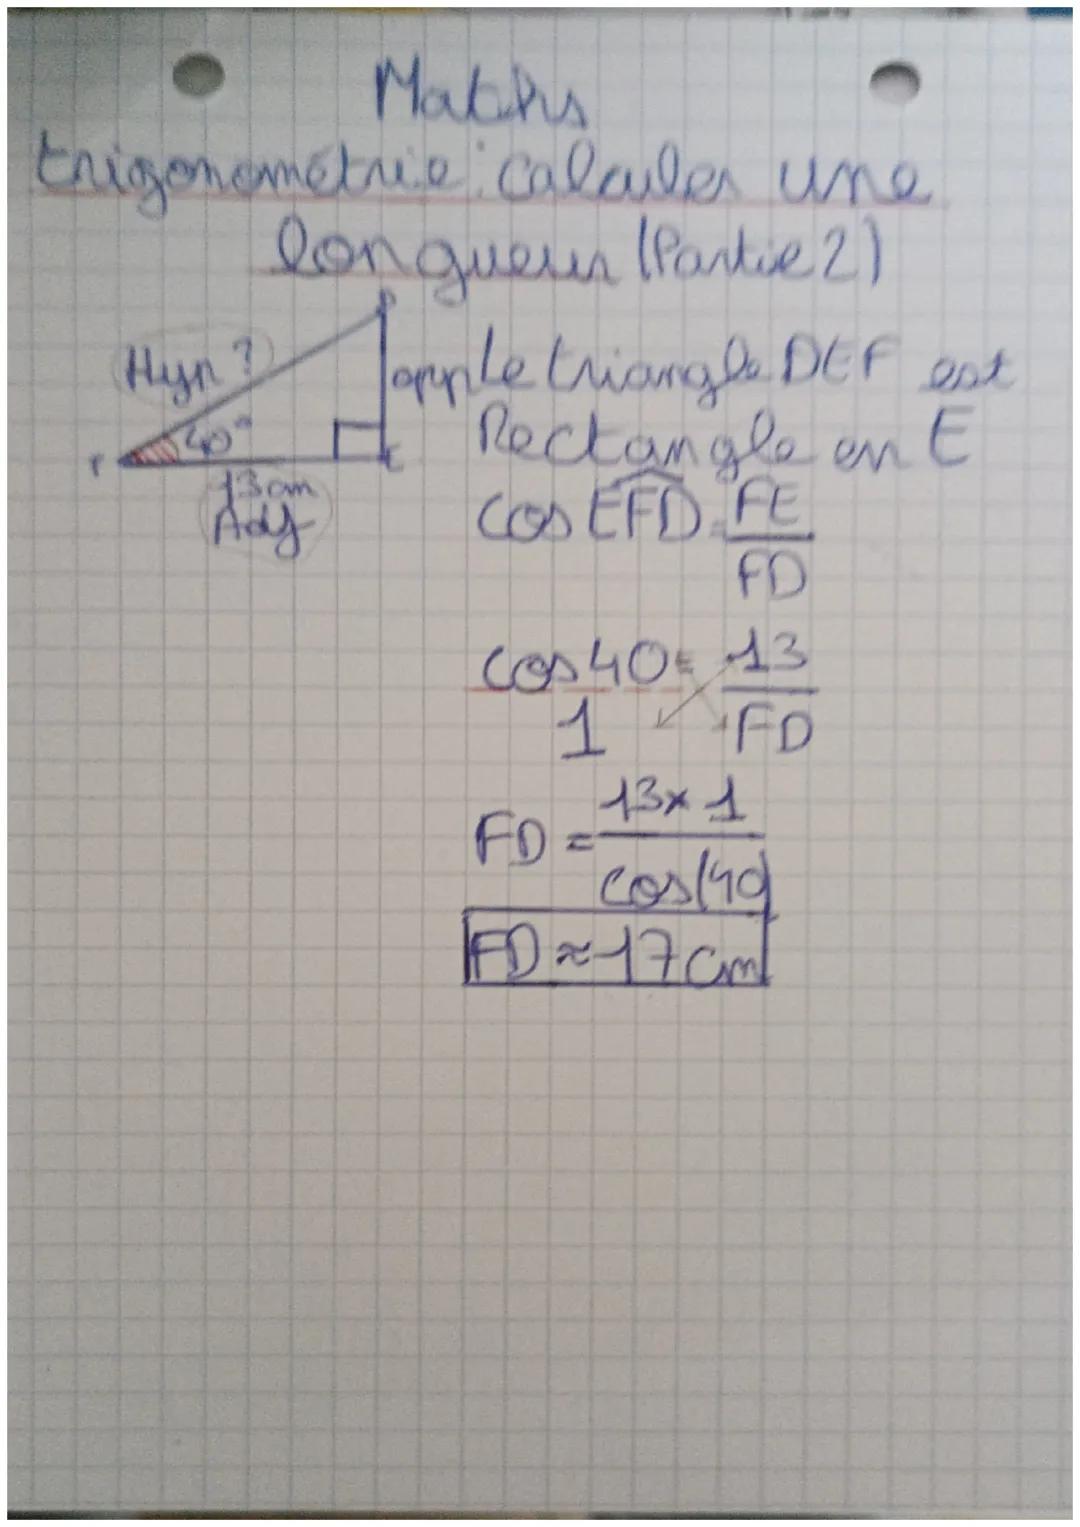 Maths
trigonométrie : calculer une
longueur (Partie 2)
D
Hyp ?
40°
F
E
13 cm
Adj
opp
Le triangle DEF est
Rectangle en E
cos EFD = FE
FD
cos 40 = 13
1 FD
FD = 13 x 1
cos(40)
FD ≈ 17 cm